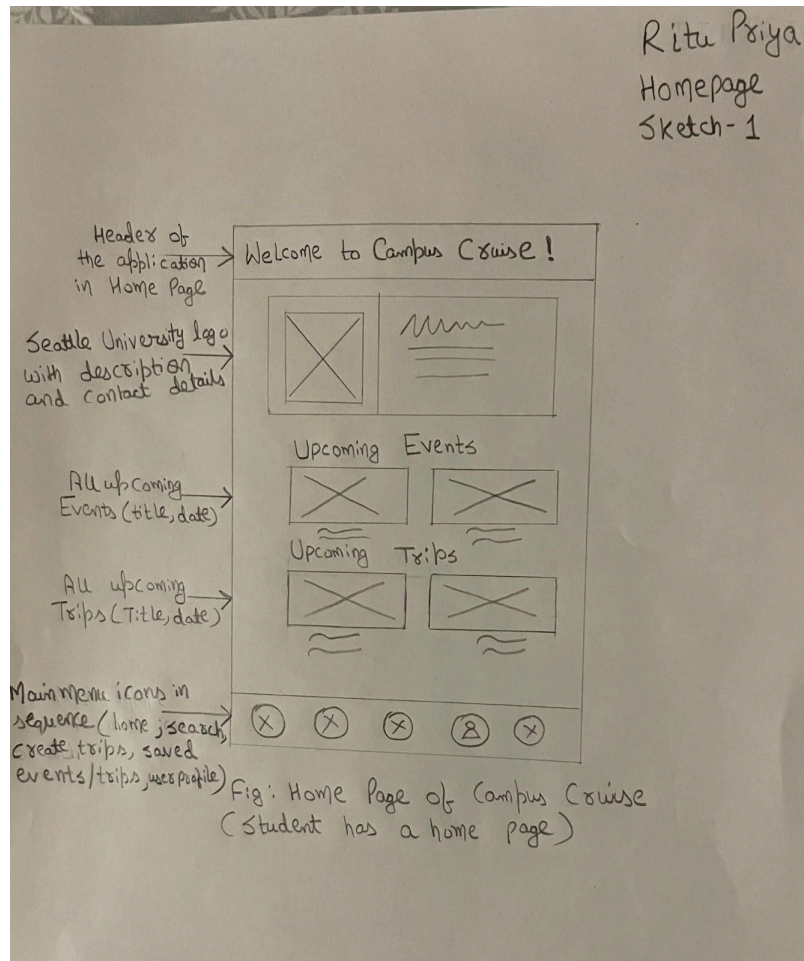 Ritu Priya
Homepage
Sketch-1
Header of
the application
in Home Page
Welcome to Campus Cruise!
Seattle University logo
with description
and contact details
Upcoming Events
All upcoming
Events (title, date)
Upcoming Trips
All upcoming
Trips (Title, date)
Main menu icons in
sequence (home, search,
create, trips, saved
events/trips, user profile)
Fig: Home Page of Campus Cruise
(Student has a home page)